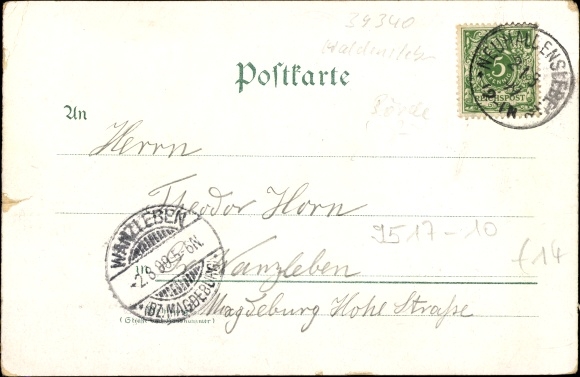 39340
Haldensleben
Börde
Postkarte
5
REICHSPOST
NEUHALDENSLEBEN
An
Herrn
Theodor Horn
9517-10
£14
WANZLEBEN
2.8.98.5-6N.
* (BZ. MAGDEBURG) *
in
Wanzleben
Magdeburg Hohe Straße
(Straße und Hausnummer)